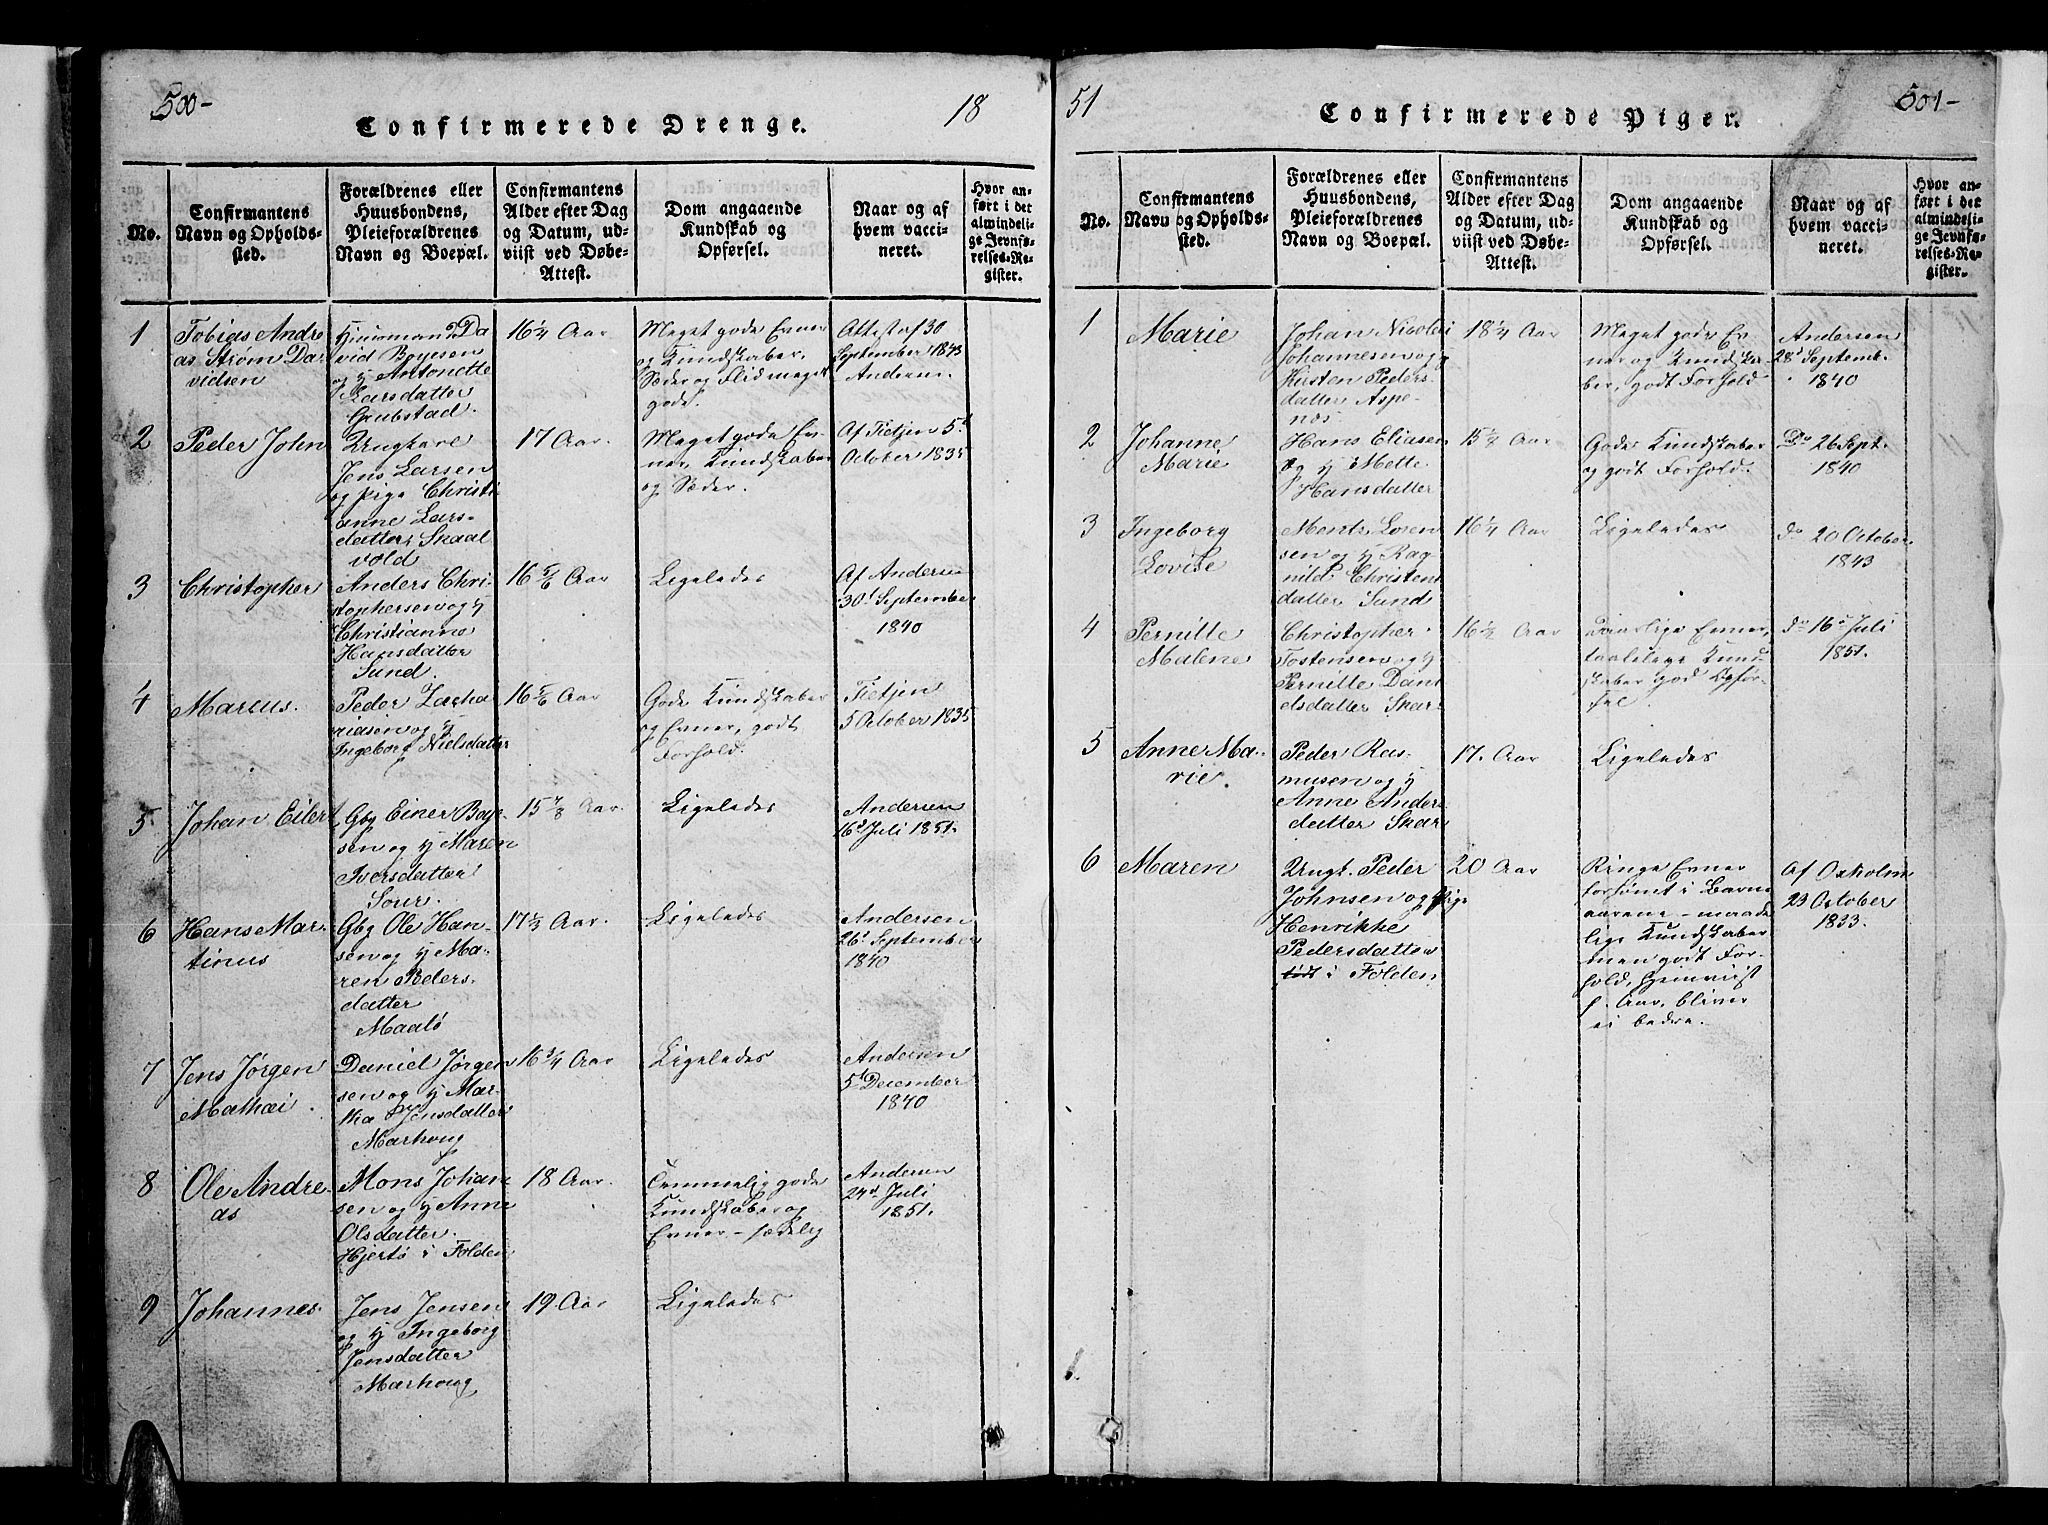 500-
Confirmerede Drenge.
18
No.
Confirmantens
Navn og Opholds-
sted.
Forældrenes eller
Huusbondens,
Pleieforældrenes
Navn og Boepæl.
Confirmantens
Alder efter Dag
og Datum, ud-
viist ved Døbe-
Attest.
Dom angaaende
Kundskab og
Opførsel.
Naar og af
hvem vacci-
neret.
Hvor an-
ført i det
almindeli-
ge Jevnfø-
relses-Re-
gister.
1
Tobias Andre
as Strøm Da-
vidsen
Da
vid Boyesen
og H Antonette
Larsdatter
Grubstad.
16 1/4 Aar
Meget gode Evner
og Kundskaber,
Sæder og Flid meget
gode.
Attest af 30
September 1843
Andersen.
2
Peder John
Ungkarl
Jens Larsen
og Pige Christi-
anne Lars-
datter Skaal
vold
17 Aar.
Meget gode Ev-
ner, Kundskaber
og Sæder.
Af Tietjen 5.t
October 1835
3
Christopher
Anders Chri-
stophersen og H
Christianna
Hansdatter
Sund.
16 5/6 Aar
Ligeledes
Af Andersen
30t September
1840
4
Marcus.
Peder Zacha
riasen og H
Ingeborg Nielsdatter
16 5/6 Aar
Gode Kundskaber
og Evner, godt
Forhold.
Tietjen
5 October 1835
5
Johan Eilert
Gbg Einer Boye
sen og H Maren
Iversdatter
Sour.
15 7/8 Aar.
Ligeledes
Andersen
16d Juli 1851.
6
Hans Mar-
tinus
Gbg Ole Han-
sen og H Ma-
ren Peders-
datter
Maalø
17 1/2 Aar.
Ligeledes
Andersen
26d September
1840
7
Jens Jørgen
Mathæi.
Daniel Jørgen
sen og H Mar-
tha Jensdatter
Marhoug
16 3/4 Aar
Ligeledes
Andersen
5d December
1840
8
Ole Andre-
as
Mons Johan
sen og H Anne
Olsdatter.
Hjertø i Folden
18 Aar.
Temmelig gode
Kundskaber og
Evner - sædelig
Andersen
24d Juli
1851.
9
Johannes.
Jens Jensen
og H Ingeborg
Jensdatter
Marhoug
19 Aar
Ligeledes
51
Confirmerede Piger.
501-
No.
Confirmantens
Navn og Opholds-
sted.
Forældrenes eller
Huusbondens,
Pleieforældrenes
Navn og Boepæl.
Confirmantens
Alder efter Dag
og Datum, ud-
viist ved Døbe-
Attest.
Dom angaaende
Kundskab og
Opførsel.
Naar og af
hvem vacci-
neret.
Hvor an-
ført i det
almindeli-
ge Jevnfø-
relses-Re-
gister.
1
Marie
Johan Nicolai
Johannesen og
Kirsten Peders
datter Aspe-
næs
18 1/4 Aar
Meget gode Ev-
ner og Kundska-
ber, godt Forhold
Andersen
28d Septemb.
1840
2
Johanne
Marie
Hans Eliasen
og H Mette
Hansdatter
15 1/2 Aar
Gode Kundskaber
og godt Forhold.
Do 26 Sept.
1840
3
Ingeborg
Lovise
Mentz Loren
sen og H Rag
nild Christens
datter Sund
16 1/4 Aar
Ligeledes
do 20 October.
1843
4
Pernille
Malene
Christopher
Tostensen og H
Pernille Dani
elsdatter Skar
16 1/2 Aar
daarlige Evner,
taalelige Kund-
skaber god Opfør-
sel
do 16d Juli
1851.
5
Anne Ma-
rie.
Peder Ras-
musen og H
Anne Anders
datter Skar
17. Aar
Ligeledes
6
Maren
Ungk. Peder
Johnsen og Pige
Henrikke
Pedersdatter
i Folden
20 Aar
Ringe Evner
forsømt i Barne
aarene - maade
lige Kundskaber
men godt For-
hold,
f. Aar, bliver
ei bedre.
Af Oxholm
23 October
1833.